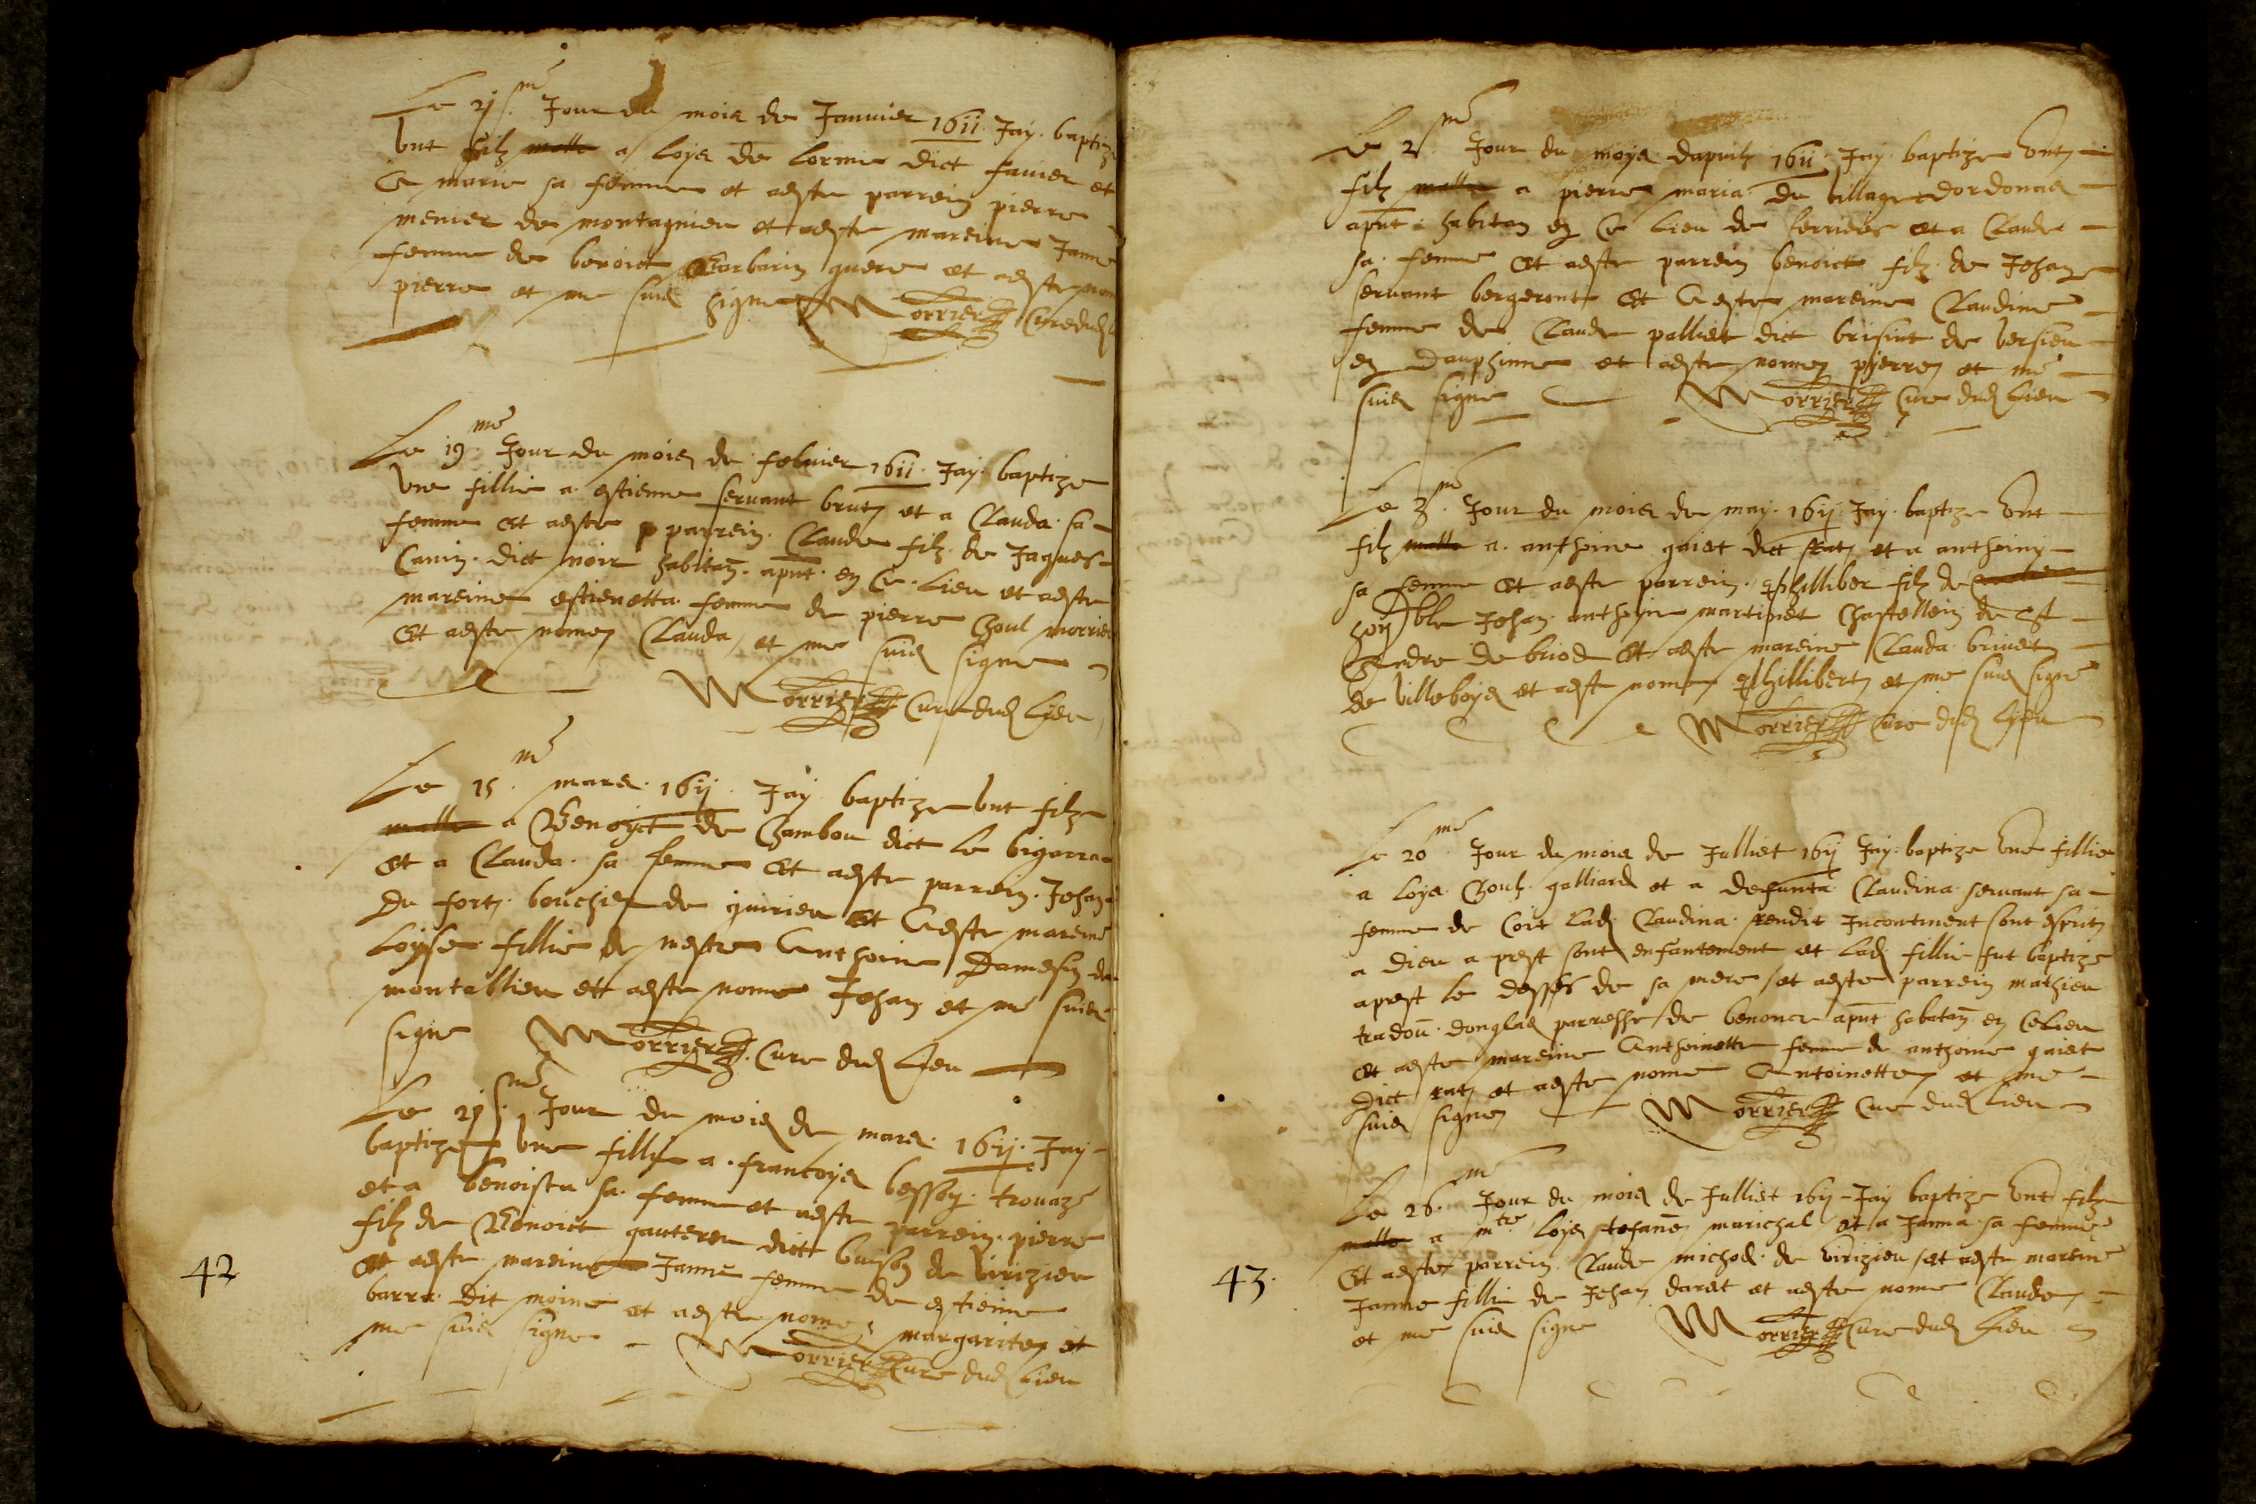 Le 21.me Jour du mois de Januier 1611 Jay baptize
Unt filz malle a loys de lorme dict fauier et
A marie sa femme et aeste parrein pierre
menier de montagnieu et aeste mareine Janne
femme de benoict Barbarin et aeste nom
pierre et me suis signe Morrier Cure dud
Le 19me Jour du mois de febvrier 1611 Jay baptize
Une fillie a estienne servant brut et a Clauda sa
femme Et aeste p parrein Claude filz de Jaques
Canin dict noir habitan apnt en Ce Lieu et aeste
mareine estienetta femme de pierre Choul
Et aeste nomez Clauda et me suis signe
Morrier Cure dud Lieu
Le 15.me mars 1611 Jay baptize Unt filz
malle a Benoyct de Chambou dict le bigarra
et a Clauda sa femme Et aeste parrein Jehan
Du fort bouchier de quirieu Et Aeste mareine
Loyse fillie de mestre Anthoine Damesin de
montallieu ett aeste nome Jehan et me suis
signe Morrier Cure dud Lieu
Le 21.me Jour du mois de mars 1611 Jay
baptizez Une fillie a francoys besson
et a benoista sa femme et aeste parrein pierre
filz de Benoict gauteren dict buison de Virizieu
Et aeste mareine Janne femme de estienne
barra dit moine et aeste nomez margarite et
me suis signe Morrier Cure dud Lieu
42
Le 2.me Jour du moys dapvril 1611 Jay baptize Unt
filz malle a pierre maria du Village dordonas
apnt habitan en Ce Lieu de serrieres et a Claude
sa femme Et aeste parrein benoict filz de Jehan
servant bergeront Et Aeste mareine Claudine
femme de Claude palliet dict brisint de Versieu
en Dauphine et aeste nomez pierre et me
suis signe Morrier Cure dud Lieu
Le 3.me Jour du mois de may 1611 Jay baptize Unt
filz malle a anthoine guiet dict rat et a anthoiny
sa femme Et aeste parrein philliber filz de
honble Jehan anthoyne martinet Chastellein de St
Andre de briod Et aeste mareine Clauda brivet
de Villeboys et aeste nomez phillibert et me suis signe
Morrier Cure dud Lieu
Le 20me Jour du mois de Julliet 1611 Jay baptize Une fillie
a loys Choul galliard et a defunta Claudina servant sa
femme de Coit Lad Claudina rendit Incontinent sont esprit
a Dieu aprest sont enfantement et Lad fillie fut baptize
aprest le desses de sa mere et aeste parrein mathieu
tradou donglas parresse de benonce apnt habitan en Ce Lieu
et aeste mareine Anthoinette femme de anthoine guiet
Dict rat et aeste nome Antoinette et me
suis signez Morrier Cure dud Lieu
Le 26.me Jour du mois de Julliet 1611 Jay baptize Unt filz
malle a mtre Loys stefane marichal et a Janna sa femme
Et aeste parrein Claude michod de Virizieu et aeste mareine
Janne fillie de Jehan daret et aeste nome Claude
et me suis signe Morrier Cure dud Lieu
43.